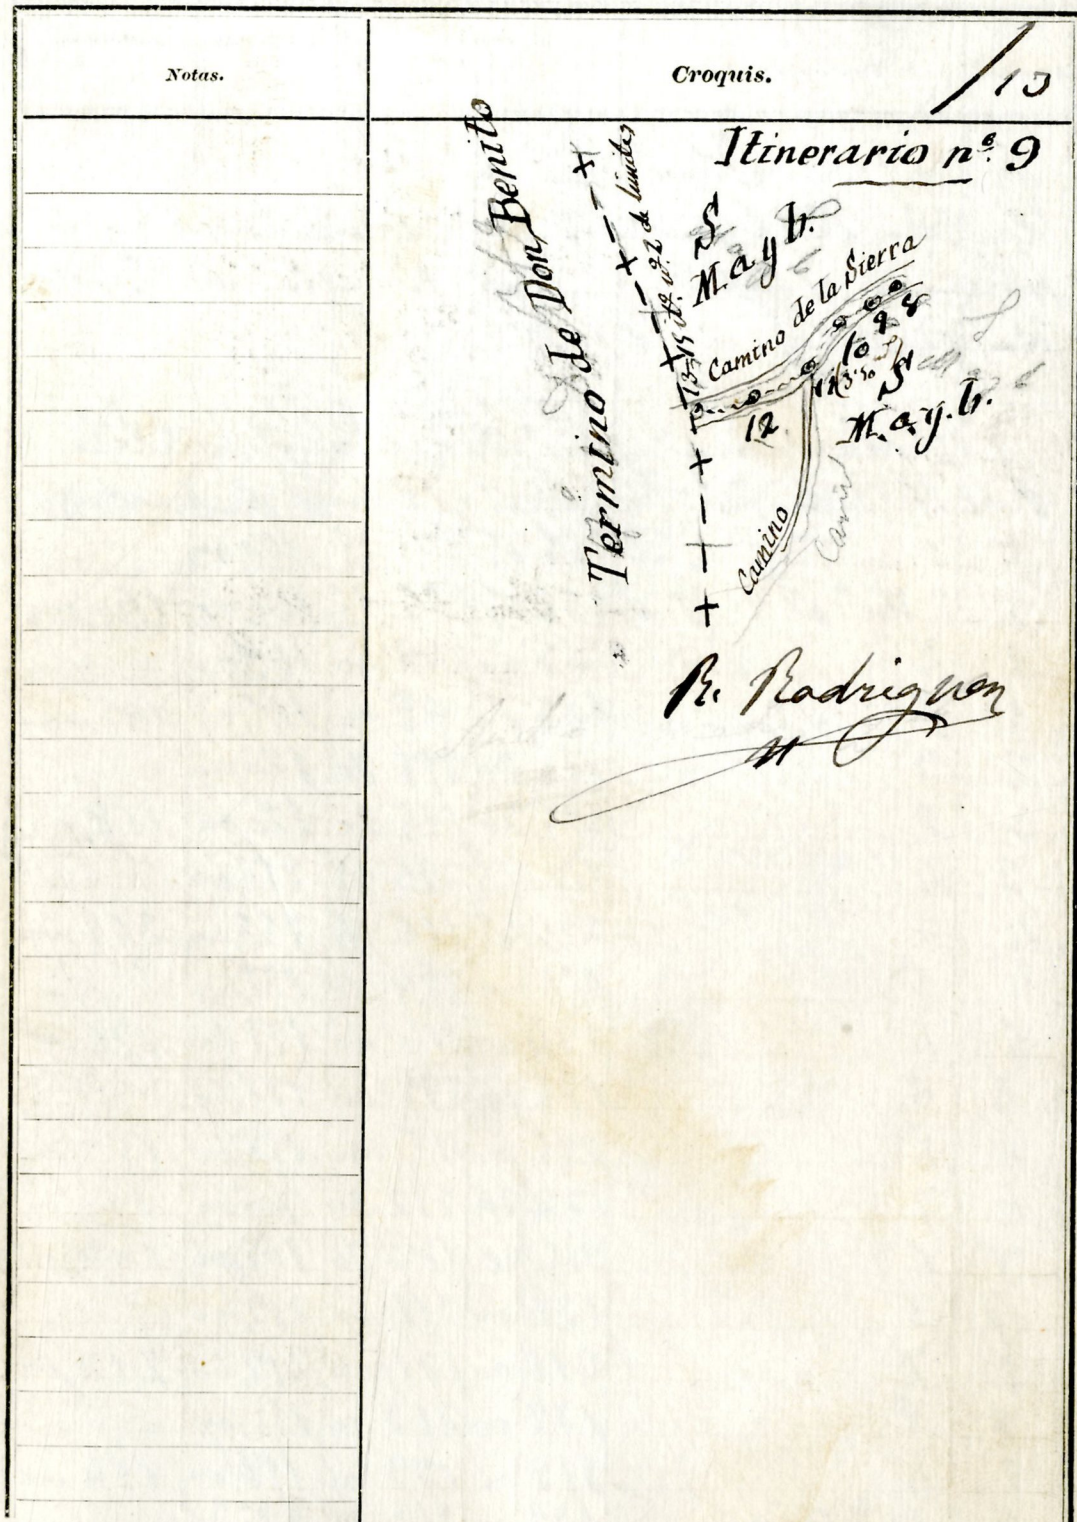 Notas.
Croquis.
/13
Itinerario nº 9
Término de Don Benito
13=15 It. nº 2 de limites
S
M. a y b.
Camino de la Sierra
8
9
10
11
12
S
M. a. y. b.
Camino
Camino
R. Rodriguez